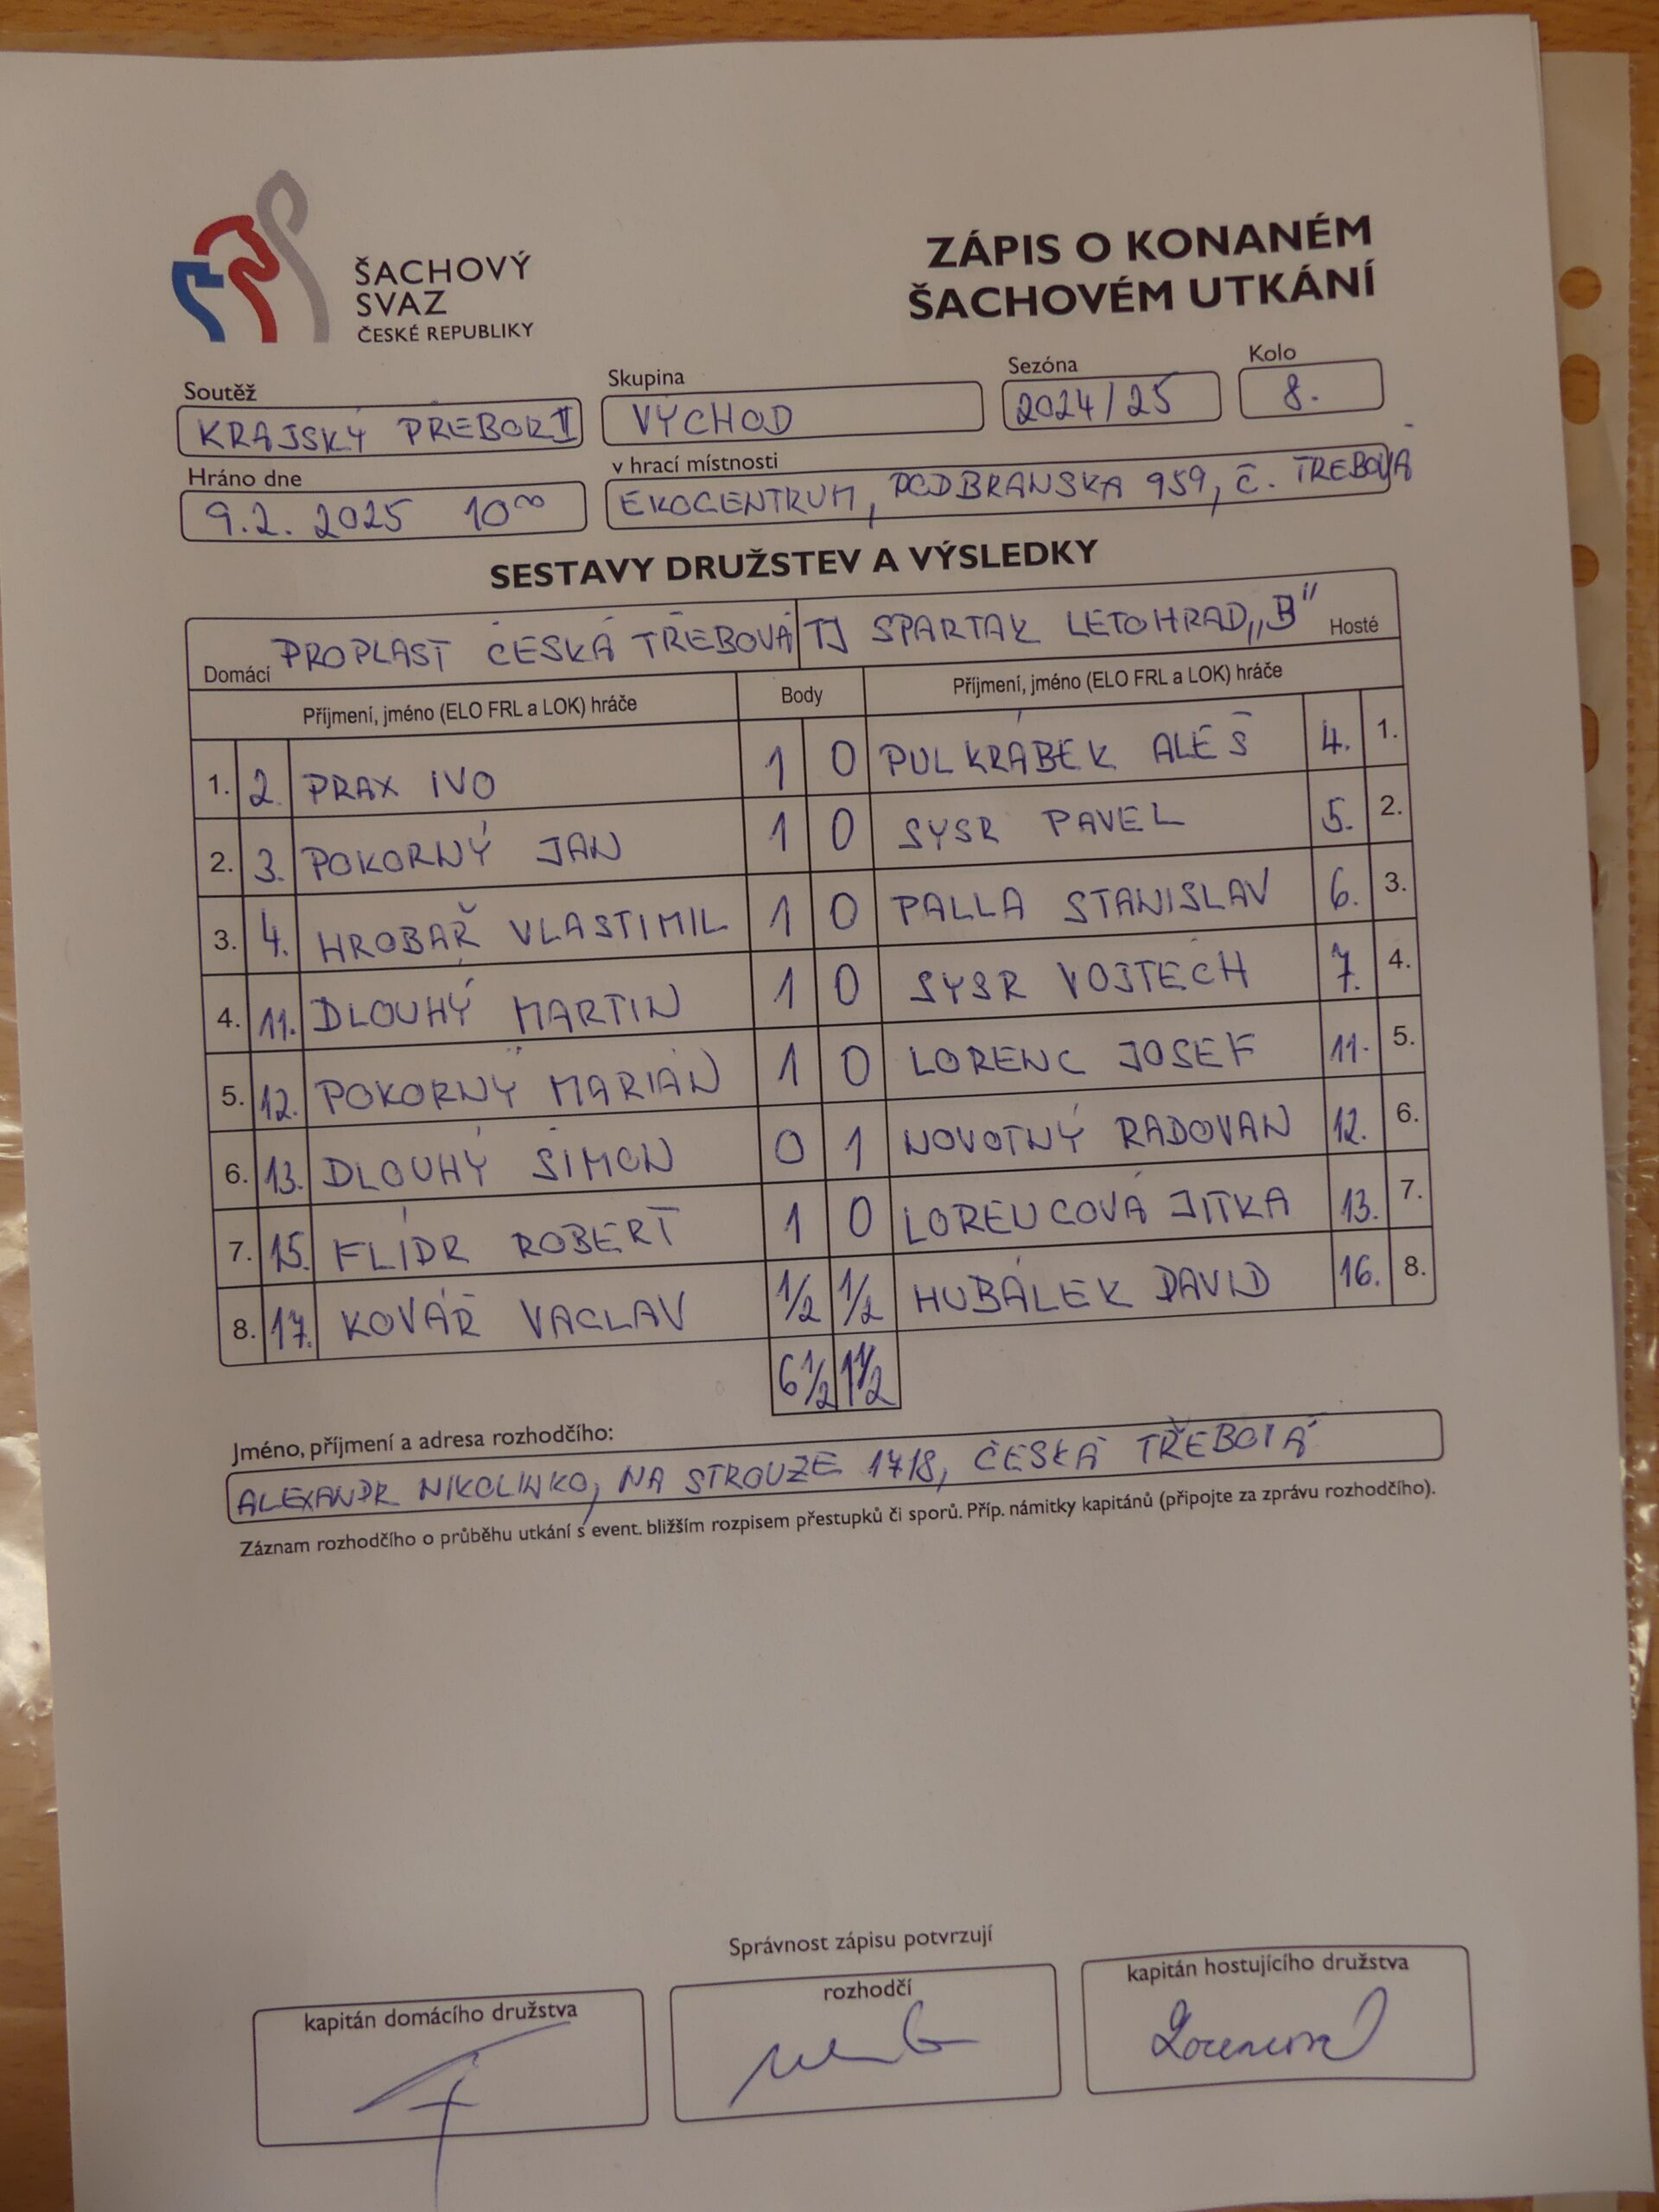 ŠACHOVÝ
SVAZ
ČESKÉ REPUBLIKY
ZÁPIS O KONANÉM
ŠACHOVÉM UTKÁNÍ
Soutěž Skupina Sezóna Kolo
KRAJSKÝ PŘEBOR II VÝCHOD 2024/25 8.
Hráno dne v hrací místnosti
9.2. 2025 10⁰⁰ EKOCENTRUM, PODBRANSKA 959, Č. TŘEBOVÁ
SESTAVY DRUŽSTEV A VÝSLEDKY
Domácí PROPLAST ČESKÁ TŘEBOVÁ TJ SPARTAK LETOHRAD „B" Hosté
Příjmení, jméno (ELO FRL a LOK) hráče Body Příjmení, jméno (ELO FRL a LOK) hráče
1. 2. PRAX IVO 1 0 PULKRÁBEK ALEŠ 4. 1.
2. 3. POKORNÝ JAN 1 0 SYSR PAVEL 5. 2.
3. 4. HROBAŘ VLASTIMIL 1 0 PALLA STANISLAV 6. 3.
4. 11. DLOUHÝ MARTIN 1 0 SYSR VOJTĚCH 7. 4.
5. 12. POKORNÝ MARIÁN 1 0 LORENC JOSEF 11. 5.
6. 13. DLOUHÝ ŠIMON 0 1 NOVOTNÝ RADOVAN 12. 6.
7. 15. FLÍDR ROBERT 1 0 LORENCOVÁ JITKA 13. 7.
8. 17. KOVÁŘ VÁCLAV 1/2 1/2 HUBÁLEK DAVID 16. 8.
6 1/2 1 1/2
Jméno, příjmení a adresa rozhodčího:
ALEXANDR NIKOLINKO, NA STROUZE 1718, ČESKÁ TŘEBOVÁ
Záznam rozhodčího o průběhu utkání s event. bližším rozpisem přestupků či sporů. Příp. námitky kapitánů (připojte za zprávu rozhodčího).
Správnost zápisu potvrzují
kapitán domácího družstva rozhodčí kapitán hostujícího družstva
Lorencová